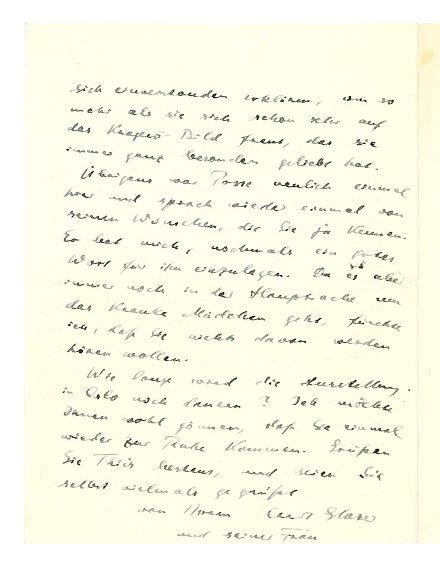 sich einverstanden erklären, um so
mehr als sie sich schon sehr auf
das Kragerö-Bild freut, das sie
immer ganz besonders geliebt hat.
Übrigens war Posse neulich einmal
hier und sprach wieder einmal von
seinen Wünschen, die Sie ja kennen.
Er bat mich, nochmals ein gutes
Wort für ihn einzulegen. Da es aber
immer noch in der Hauptsache um
das Kranke Mädchen geht, fürchte
ich, daß Sie nichts davon werden
hören wollen.
Wie lange wird die Ausstellung
in Oslo noch dauern? Ich möchte
Ihnen wohl gönnen, daß Sie einmal
wieder zur Ruhe kommen. Grüßen
Sie Thiis bestens, und seien Sie
selbst vielmals gegrüßt
von Ihrem Curt Glaser
und seiner Frau